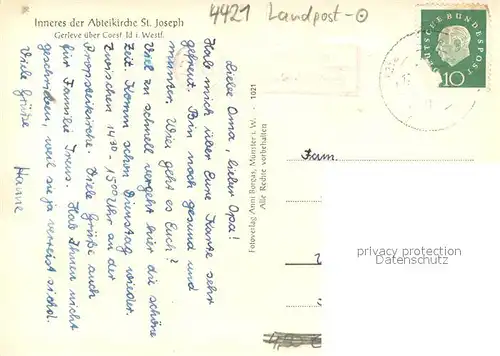 4421 Landpost-
Inneres der Abteikirche St. Joseph
Gerleve über Coesfeld i. Westf.
Liebe Oma, lieber Opa!
Hab mich über Eure Karte sehr
gefreut. Bin noch gesund und
munter. Wie geht es Euch?
Viel zu schnell vergeht hier die schöne
Zeit. Komm schon Dienstag wieder.
Zwischen 1430 - 1500 Uhr an der
Propsteikirche. Viele Grüße auch
für Familie. Hab Ihnen nicht
geschrieben, weil sie ja verreist sind.
Viele Grüße
Hanne
1021
Fotoverlag Anni Borgas, Münster i. W.
Alle Rechte vorbehalten
DEUTSCHE BUNDESPOST
10
Fam.
privacy protection
Datenschutz